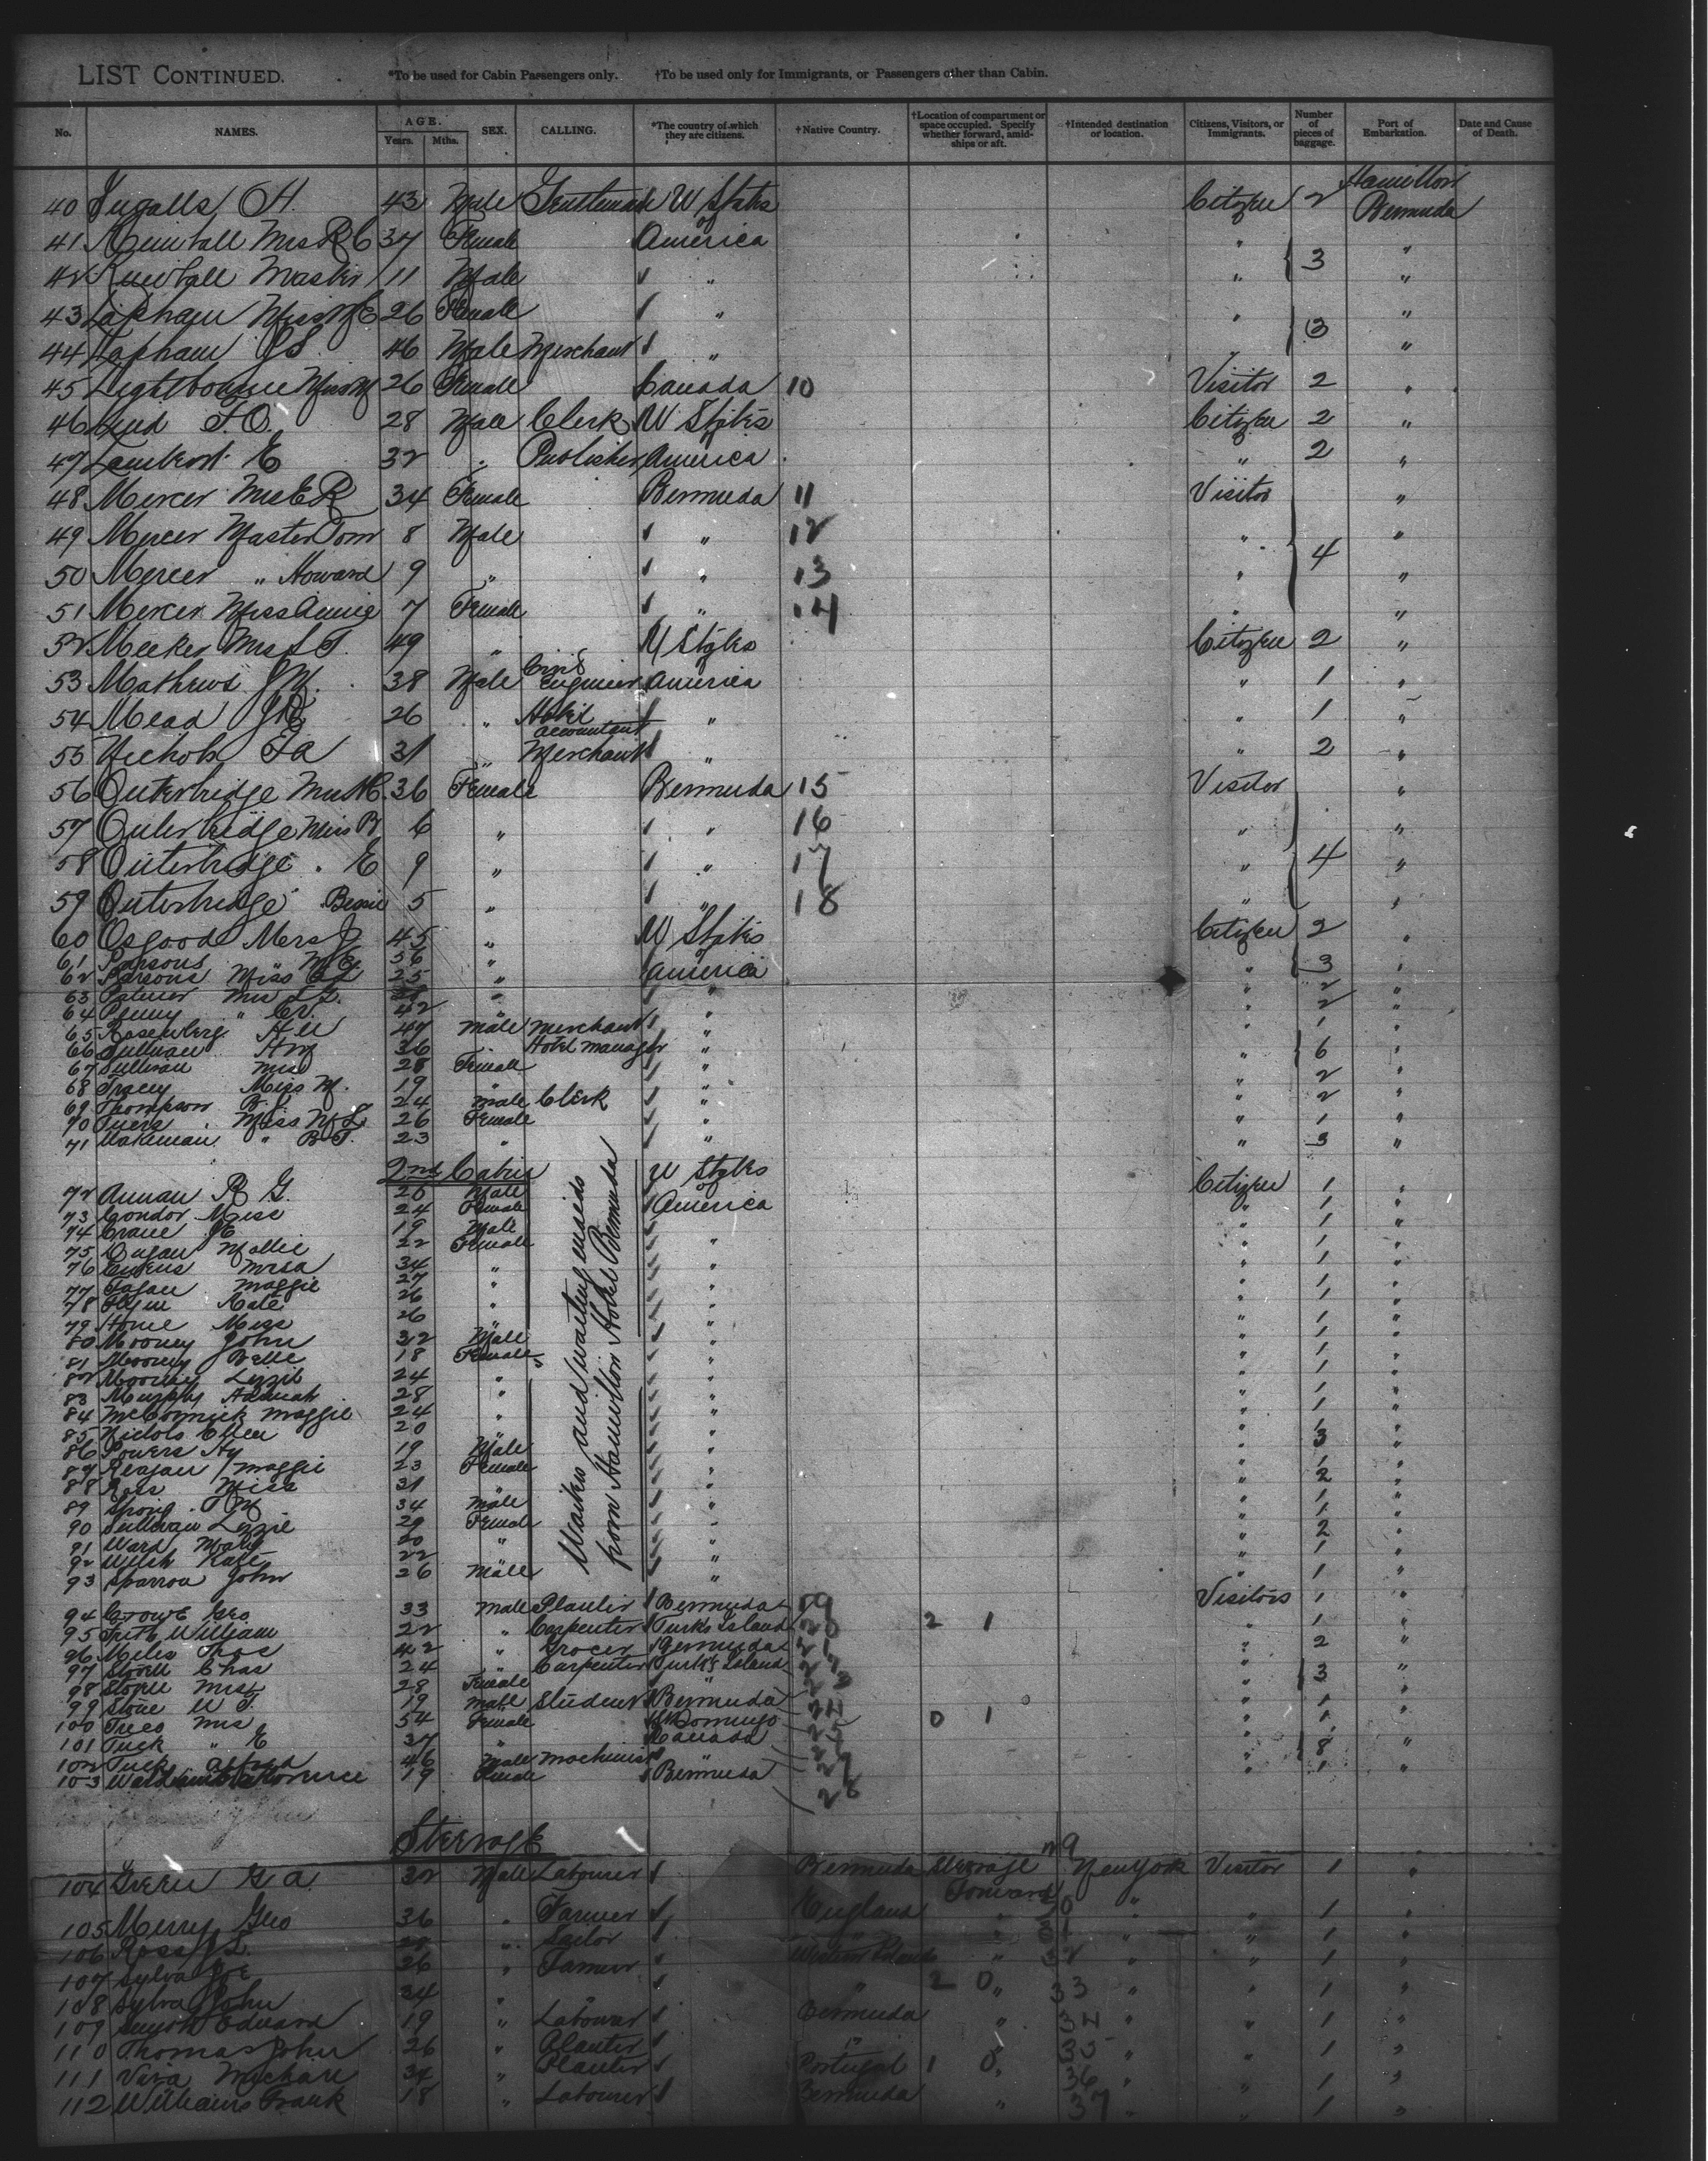 LIST CONTINUED. *To be used for Cabin Passengers only. †To be used only for Immigrants, or Passengers other than Cabin.
No. NAMES. AGE. Years. Mths. SEX. CALLING. *The country of which they are citizens. †Native Country. †Location of compartment or space occupied. Specify whether forward, amidships or aft. †Intended destination or location. Citizens, Visitors, or Immigrants. Number of pieces of baggage. Port of Embarkation. Date and Cause of Death.
40 Ingalls H. 43 Male Gentleman U States Citizen 2 Hamilton Bermuda
41 Kimball Mrs R C 37 Female of America " 3 "
42 Kimball Master 11 Male " " "
43 Lapham Miss 26 Female " " 3 "
44 Lapham J S 46 Male Merchant " " "
45 Lightbourne Miss M 26 Female Canada 10 Visitor 2 "
46 F. O. 28 Male Clerk U States Citizen 2 "
47 Lambert E 32 " Publisher America " 2 "
48 Mercer Mrs E R 34 Female Bermuda 11 Visitor "
49 Mercer Master Tom 8 Male " 12 " 4 "
50 Mercer " Howard 9 " " 13 " "
51 Mercer Miss Annie 7 Female " 14 " "
52 Meeker Mrs S T. 49 " U States Citizen 2 "
53 Mathews J M. 38 Male Civil Engineer of America " 1 "
54 Mead J R 26 " Hotel accountant " " 1 "
55 Nichols F A 31 " Merchant " " 2 "
56 Outerbridge Mrs 36 Female Bermuda 15 Visitor "
57 Outerbridge Miss B 6 " " 16 " "
58 Outerbridge " E 9 " " 17 " 4 "
59 Outerbridge Bessie 5 " " 18 " "
60 Osgood Mrs J 45 " U States Citizen 2 "
61 Parsons " 56 " of America " 3 "
62 Parsons Miss 25 " " "
63 Palmer Mrs " " " 2 "
64 Penny " 42 " " 2 "
65 Rosenberg H 47 Male Merchant " " 1 "
66 Sullivan H M 36 " Hotel manager " " 6 "
67 Sullivan Mrs 28 Female " "
68 Tracey Miss M. 19 " " " 2 "
69 Thompson 24 Male Clerk " " 2 "
70 Miss M L 26 Female " " 1 "
71 Wakeman " B T. 23 " " " 3 "
2nd Cabin
Waiters and waiting maids from Hamilton Hotel Bermuda
72 Annan R G. 20 Male U States Citizen 1 "
73 Condor Miss 24 Female of America " 1 "
74 Crane 19 Male " 1 "
75 Dugan Mollie 22 Female " " 1 "
76 34 " " " 1 "
77 Fagan Maggie 27 " " " 1 "
78 Flynn Kate 26 " " " 1 "
79 Howe Miss 26 " " " 1 "
80 Mooney John 32 Male " " 1 "
81 Mooney Belle 18 Female " " 1 "
82 Mooney Lizzie 24 " " " 1 "
83 Murphy Hannah 28 " " " 1 "
84 McCormick Maggie 24 " " " 1 "
85 Nichols Ellen 20 " " " 1 "
86 Powers Hy 19 Male " " 3 "
87 Reagan Maggie 23 Female " " 1 "
88 Ross Miss 31 " " " 2 "
89 34 Male " " 1 "
90 Sullivan Lizzie 29 Female " " 1 "
91 Ward Mary 20 " " " 2 "
92 Welsh Kate 22 " " " 1 "
93 Sparrow John 26 Male " " 1 "
94 Crowe Geo 33 Male Planter Bermuda 19 Visitors 1 "
95 Frith William 22 " Carpenter Turks Island 20 2 1 " 1 "
96 Miles Thos 42 " Grocer Bermuda 21 " 2 "
97 Stovell Chas 24 " Carpenter Turk's Island " 3 "
98 Stovell Mrs 28 Female " 23 " "
99 Stone W T. 19 Male Student Bermuda 24 " 1 "
100 Mrs 54 Female St Domingo 25 0 1 " 1 "
101 Tuck " E 37 " Canada " 8 "
102 Tuck Alfred 46 Male Machinist " 27 " "
103 Florence 19 Female Bermuda 28 " 1 "
Steerage
104 Green G A. 32 Male Labourer Bermuda Steerage Forward 29 New York Visitor 1 "
105 Merry Geo 36 " Farmer England " 30 " " 1 "
106 Ross J L. " Sailor " " 31 " " 1 "
107 Sylva Joe 26 " Farmer Western Islands " 32 " " 1 "
108 Sylva John 24 " " " 2 0 " 33 " " 1 "
109 Edward 19 " Labourer Bermuda " 34 " " 1 "
110 Thomas John 26 " Planter " " 35 " " 1 "
111 34 " Planter Portugal 1 0 " 36 " " 1 "
112 Williams Frank 18 " Labourer Bermuda " 37 " " 1 "